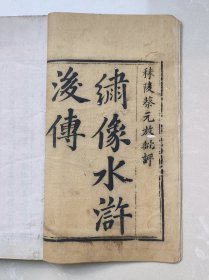 秣陵蔡元放批評
繡像水滸
後傳